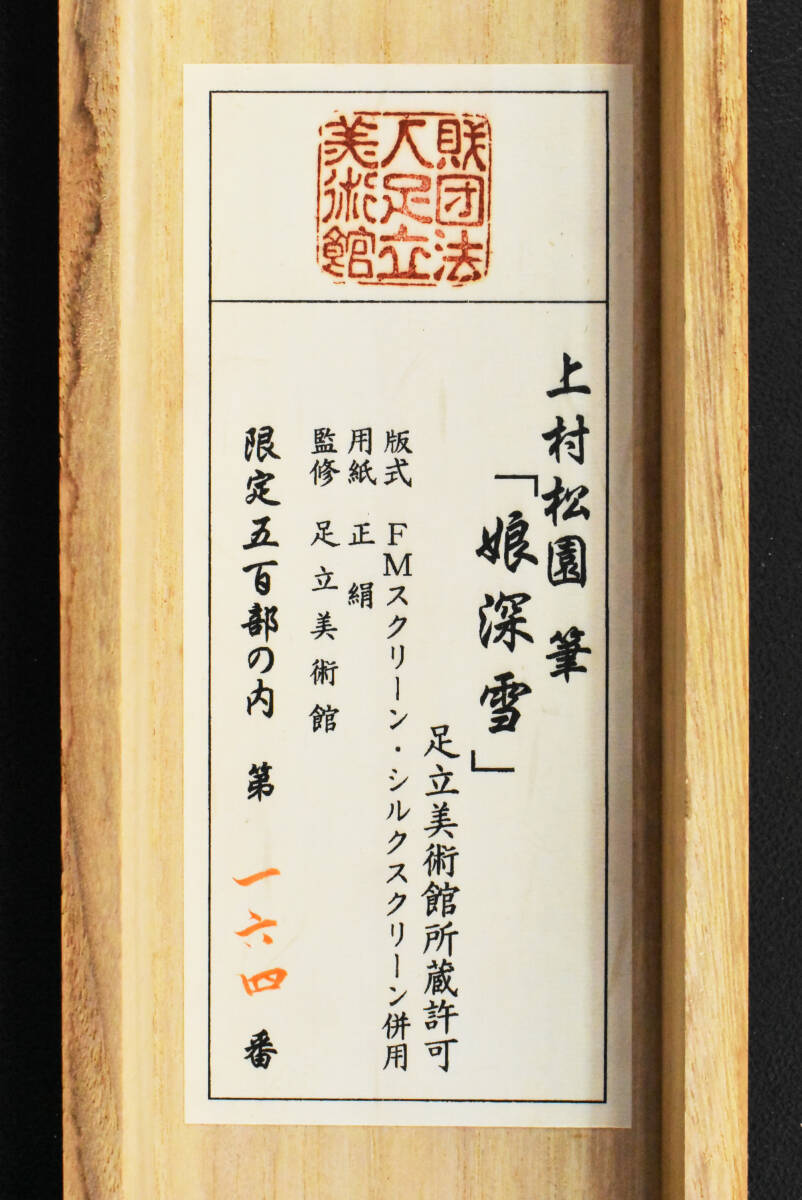 財団法
人足立
美術館
上村松園 筆
「娘深雪」
足立美術館所蔵許可
版式 FMスクリーン・シルクスクリーン併用
用紙 正絹
監修 足立美術館
限定五百部の内 第 一六四 番